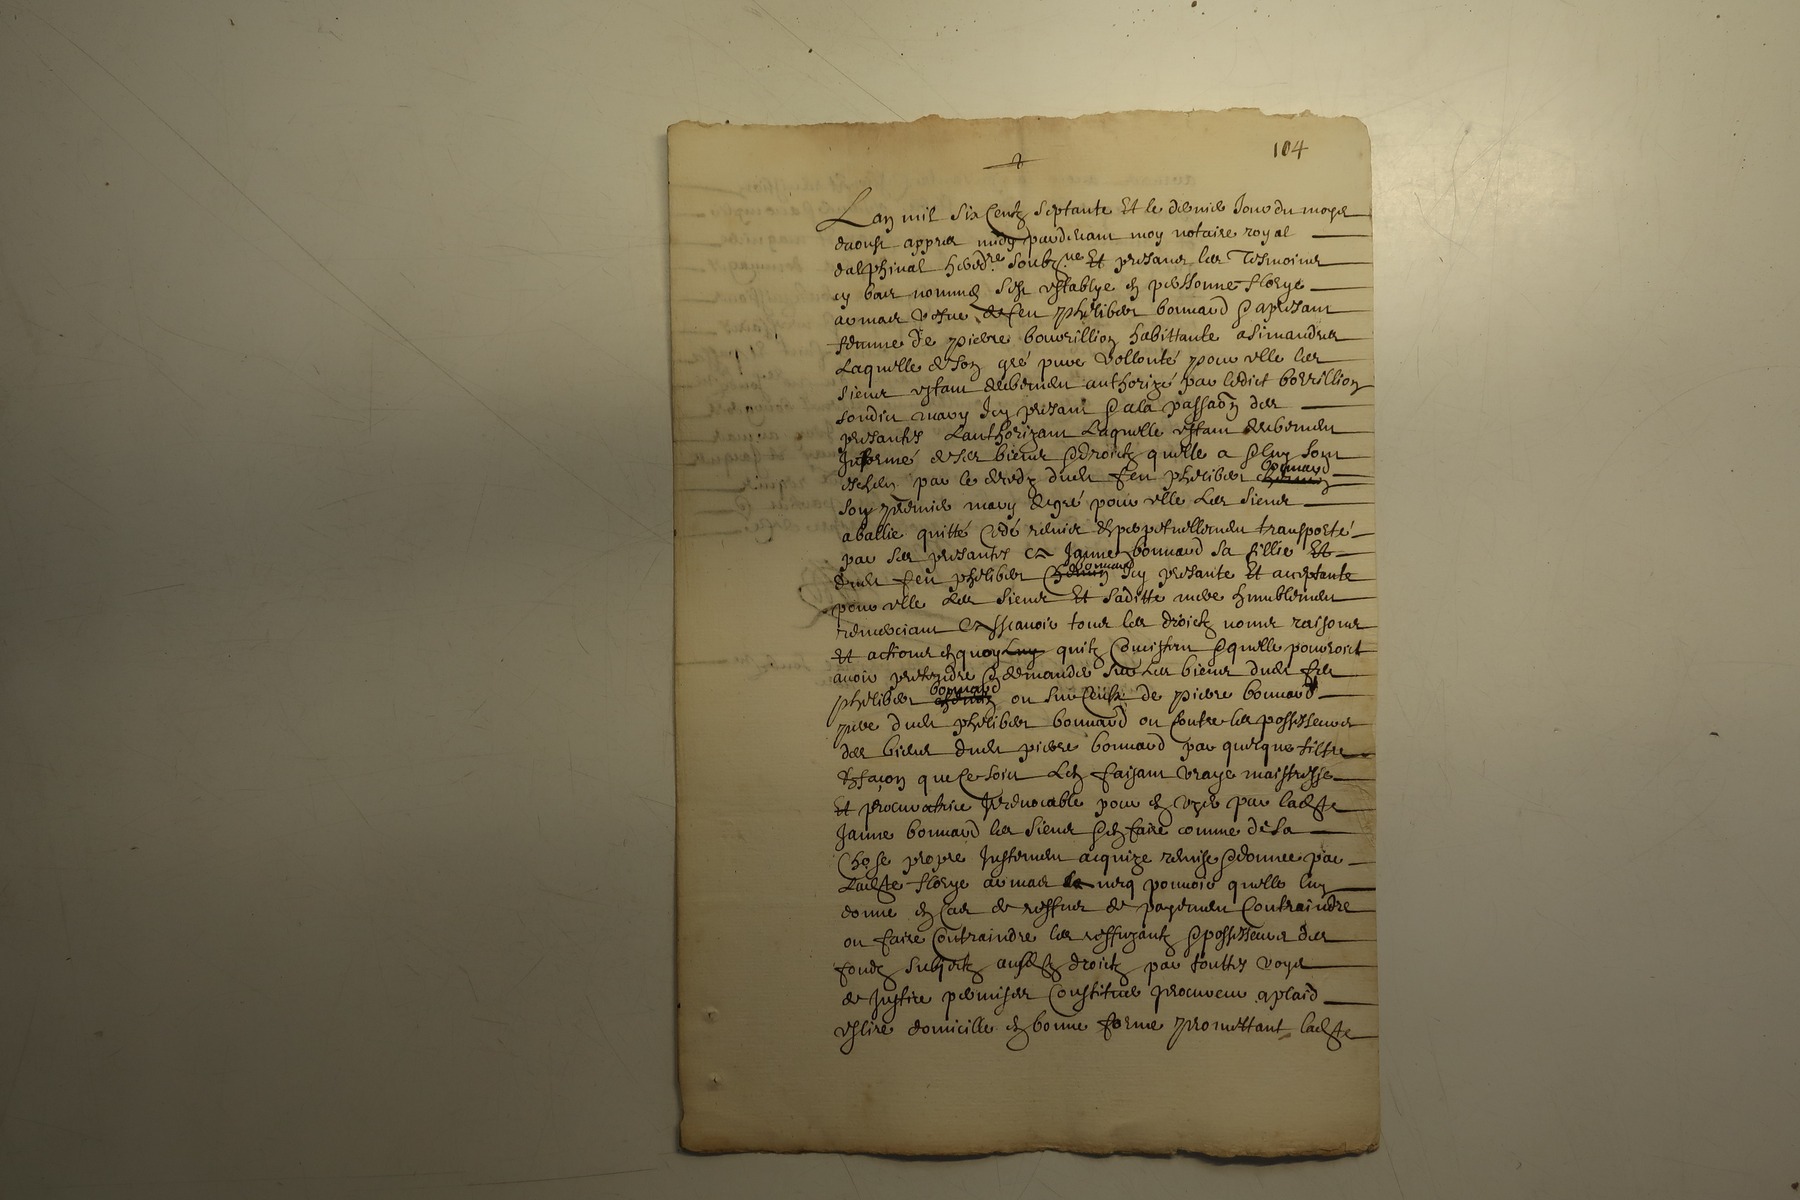 104
Lan mil six Centz septante Et le dernier Jour du moys
daoust appres midy pardevant moy notaire royal
dalphinal hered.re soubz.ne Et presans les Tesmoins
cy bas nommés sest establye en personne Florye
aumar vefve de feu Philiber bonnard & apresant
femme de pierre bourrillion habittante a simandres
Laquelle de son gré pure Vollonté pour elle les
siens estant deubemen authorizé par ledict borrillion
sondict mary Icy presant & ala passaōn des
presantes Lauthorizant Laquelle estant deubemen
Informé de ses biens & droictz quelle a & luy sont
escheu par le decedz dudt feu philiber bonnard
son premier mary de gré pour elle Les siens
a ballie quitté Cedé remis et perpetuellemen transporté
par ses presantes a Janne bonnard sa fillie Et
dudt feu philiber bonnard Icy presante Et aceptante
pour elle Les siens Et saditte mere humblemen
remerciant a sscavoir tous les droictz noms raisons
Et actions en quoy quilz Consistent & quelle pourroict
avoir pretendre & demander sur Les biens dudt feu
philiber bonnard ou sur Ceux de pierre bonnard
pere dudt philiber bonnard ou Contre les possesseurs
des biens dudt pierre bonnard par quelque tiltre
& façon que Ce soit Len faisant vraye maistresse
Et procuratrice Irrevocable pour en uzer par ladte
Janne bonnard les siens & en faire comme de sa
Chose propre Justemen acquize remise & donnee par
Ladte Florye aumar pouvoir quelle luy
donne en Cas de reffus de payemen Contraindre
ou faire Contraindre les reffuzantz & possesseurs des
fondz subjectz ausdtz droictz par touttes voyes
de Justice permises Constituer procureur a plaid
eslire domicille en bonne forme promettant ladte